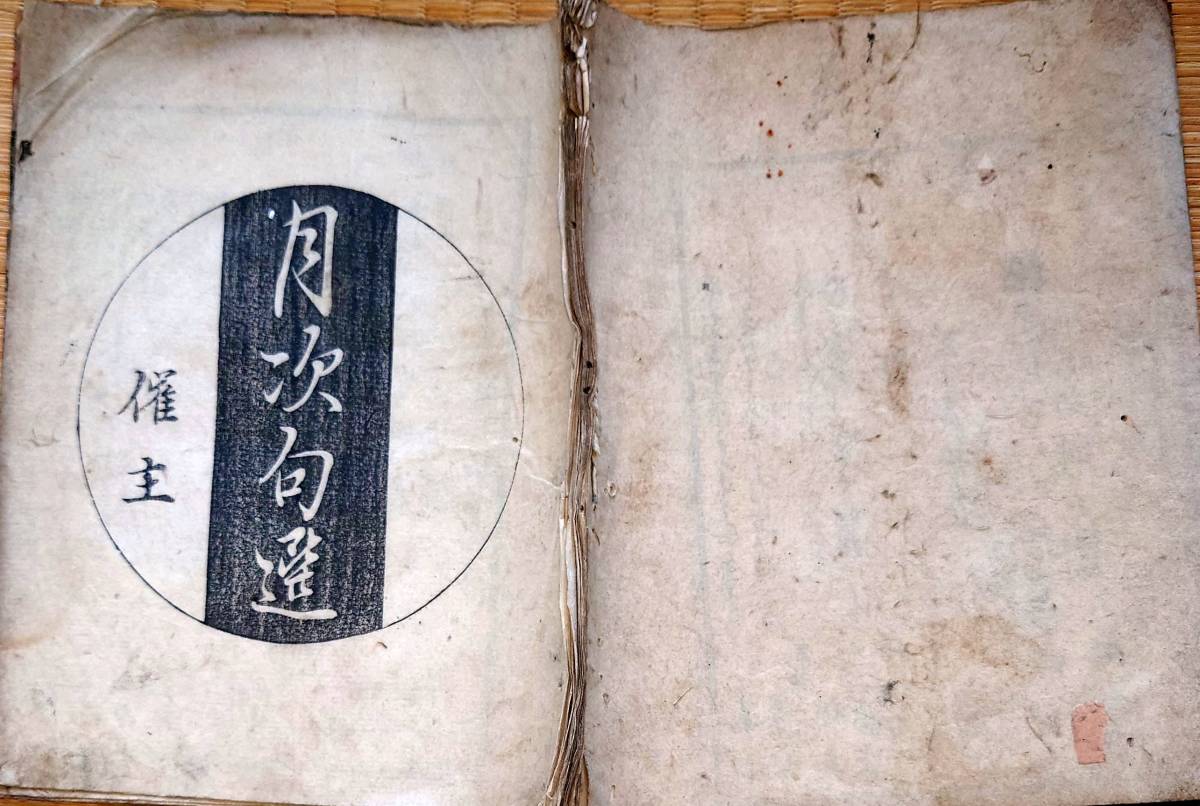 月次句選
催主